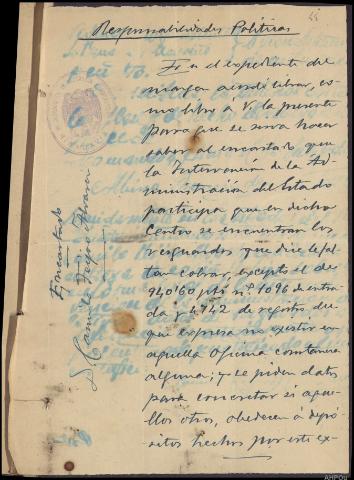 45
Responsabilidades Políticas
En el expediente del
margen acordé librar, co-
mo libro a V. la presente
para que se sirva hacer
saber al encartado que
la Intervención de la Ad-
ministración del Estado
participa que en dicho
Centro se encuentran los
resguardos que dice le fal-
tan cobrar, excepto el de
940'60 pts nº 1096 de entra-
da y 4742 de registro, del
que expresa no existir en
aquella Oficina constancia
alguna; y se piden datos
para concretar si aque-
llos otros, obedecen á depó-
sitos hechos por este ex-
Encartado
D. Camilo
AHPOu